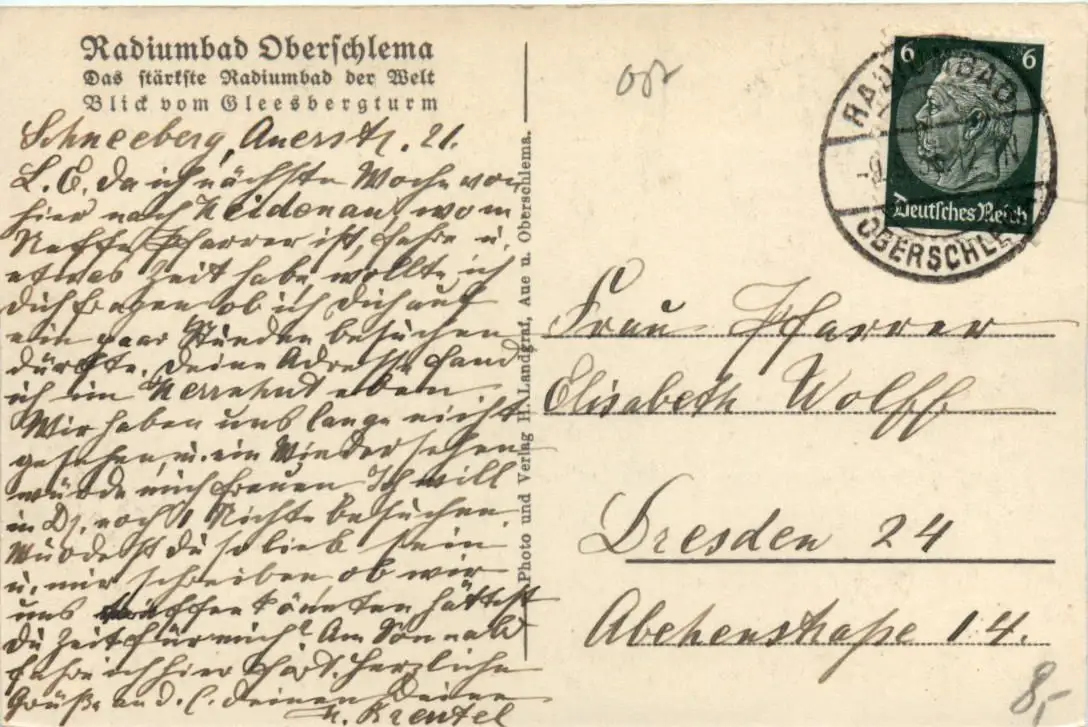 Radiumbad Oberschlema
Das stärkste Radiumbad der Welt
Blick vom Gleesbergturm
Schneeberg, Auerstr. 21.
L. E. Da ich nächste Woche von
hier nach Heidenau, wo m
Neffe Pfarrer ist, fahre u.
etwas Zeit habe, wollte ich
Dich fragen, ob ich Dich auf
ein paar Stunden besuchen
dürfte. Deine Adresse fand
ich im Herrnhut eben
Wir haben uns lange nicht
gesehen, u. ein Wiedersehen
würde mich freuen Ich will
in Dr. noch 1 Nichte besuchen.
Würdest du so lieb sein
u. mir schreiben, ob wir
uns treffen könnten, hättest
Du Zeit für mich? Am Sonnabd
fahre ich hier fort. Herzliche
Grüße an d. l. Deinen Deine
Photo und Verlag H. Landgraf, Aue u. Oberschlema.
6 6
Deutsches Reich
RADIUMBAD
OBERSCHLEMA
Frau Pfarrer
Elisabeth Wolff
Dresden 24
14.
8,-